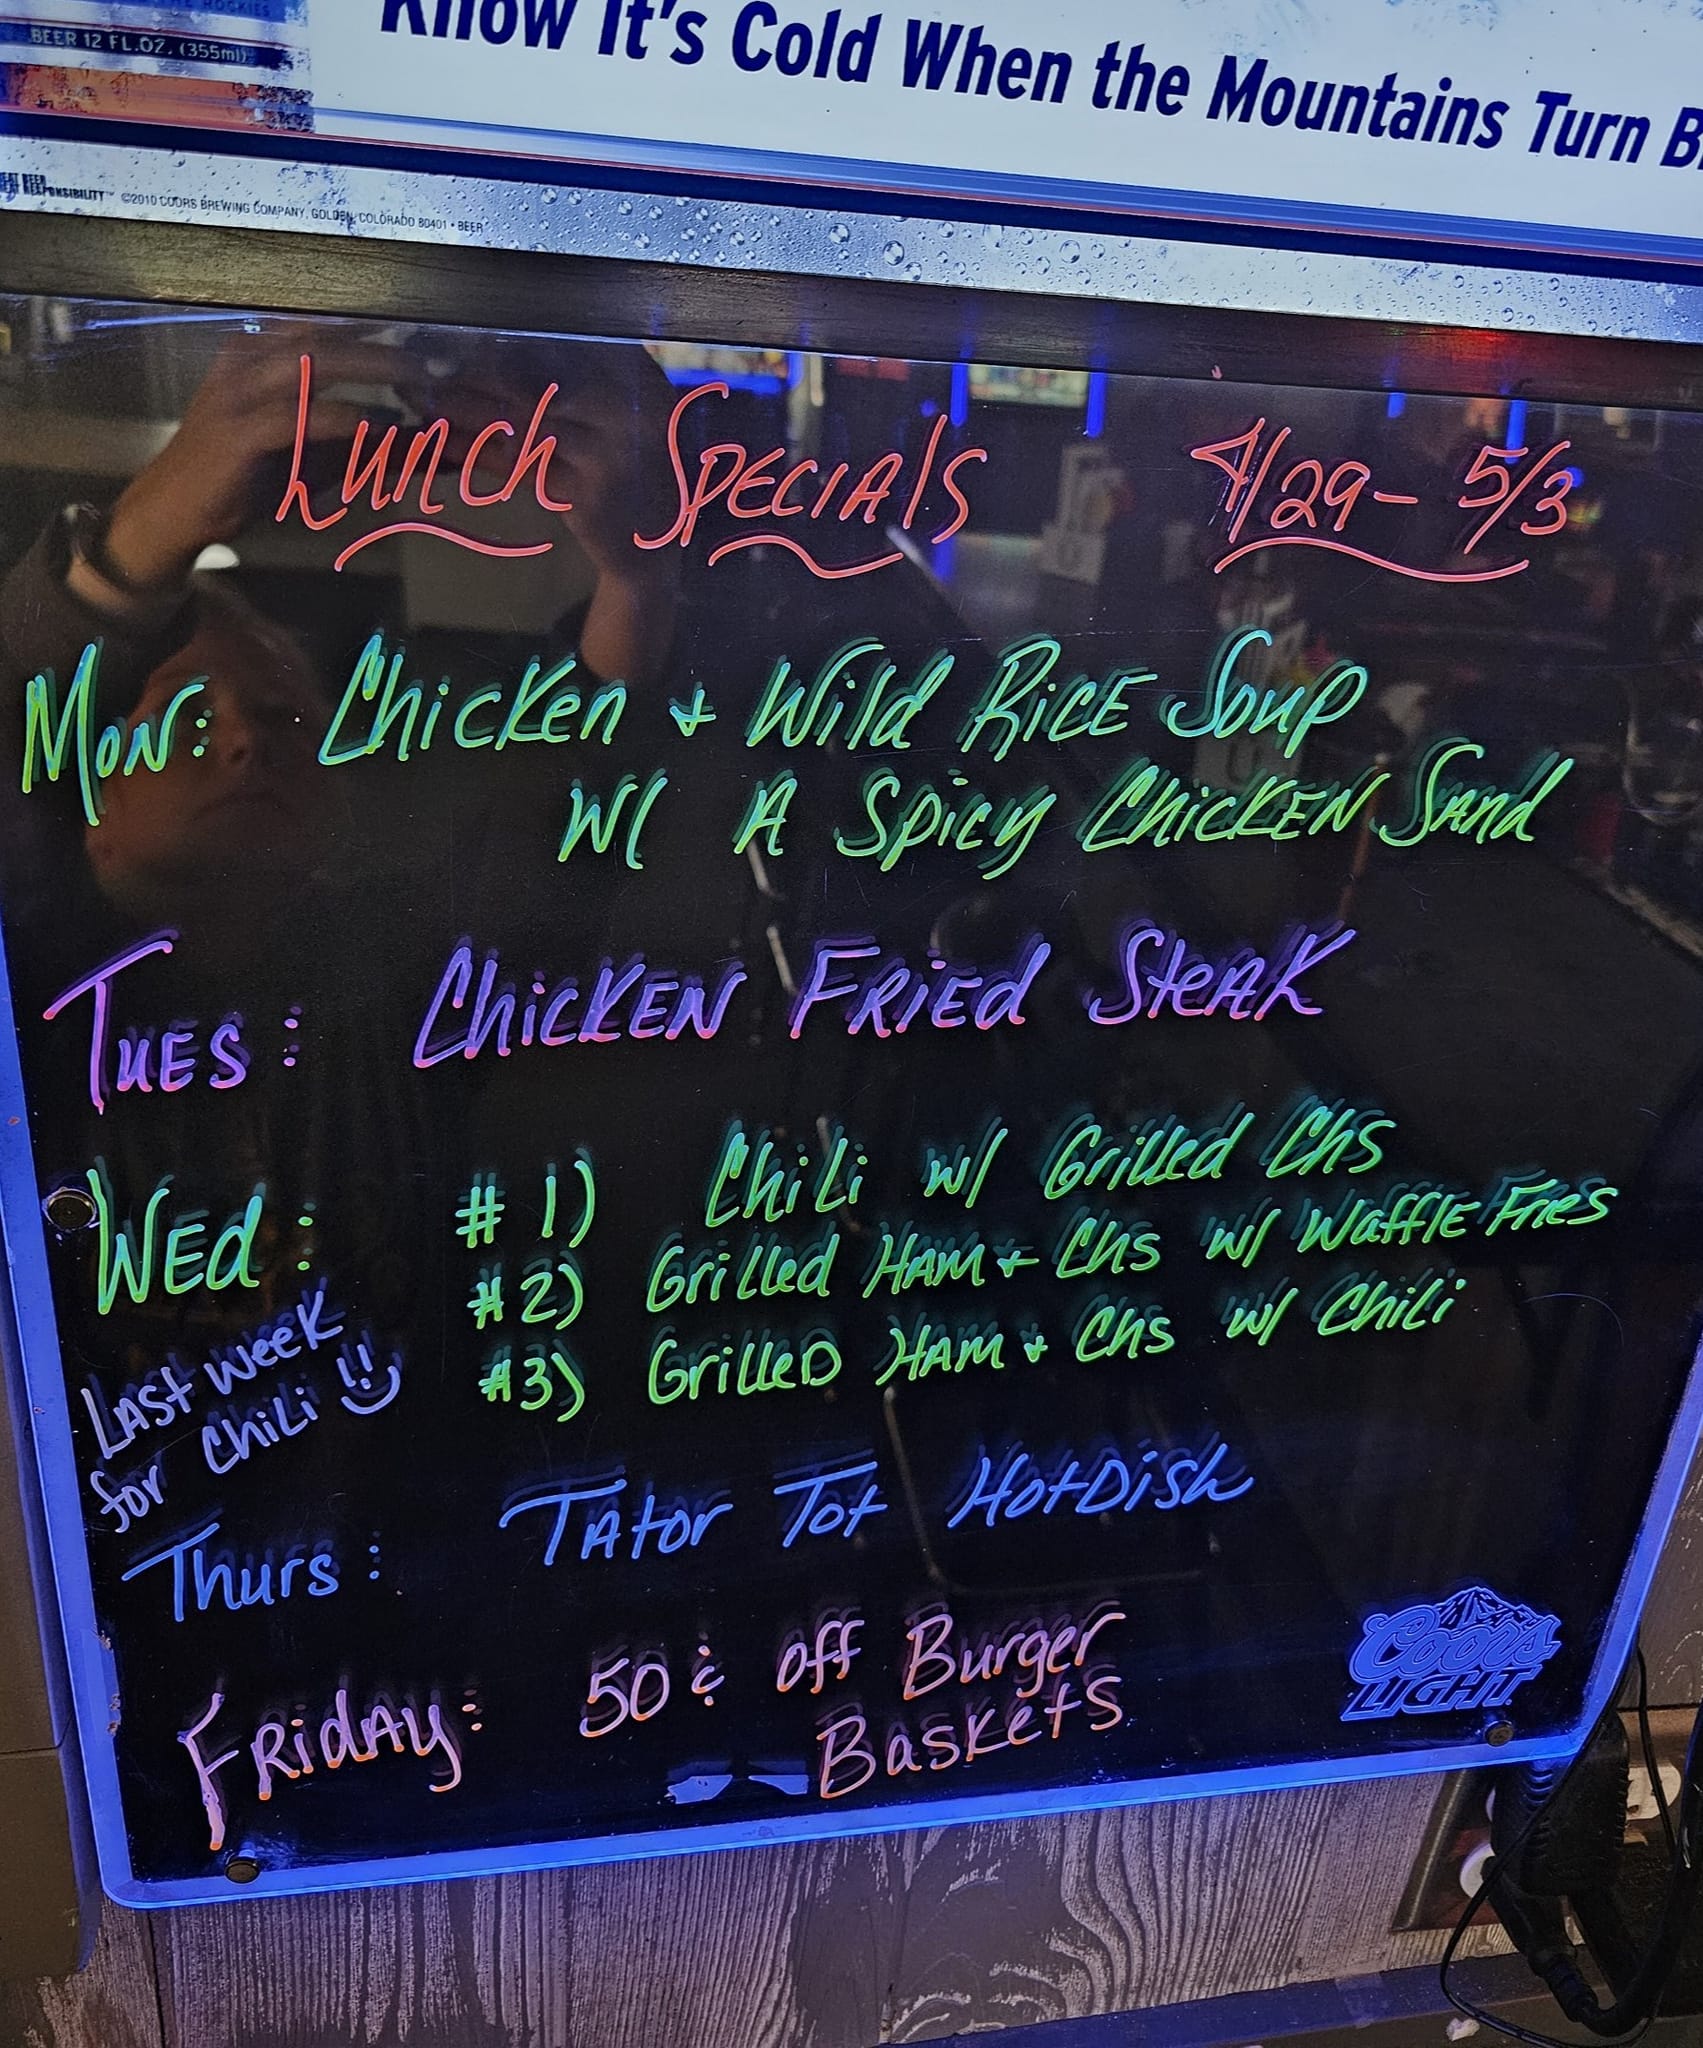 THE ROCKIES
BEER 12 FL.OZ. (355ml)
Know It's Cold When the Mountains Turn
RESPONSIBILITY ™ ©2010 COORS BREWING COMPANY, GOLDEN, COLORADO 80401 • BEER
Lunch Specials 4/29 - 5/3
Mon: Chicken + Wild Rice Soup
W/ A Spicy Chicken Sand
Tues: Chicken Fried Steak
Wed: #1) Chili w/ Grilled Chs
#2) Grilled Ham + Chs w/ Waffle Fries
#3) Grilled Ham + Chs w/ Chili
Last week
for Chili !!
Thurs: Tator Tot HotDish
Friday: 50¢ off Burger
Baskets
Coors
LIGHT